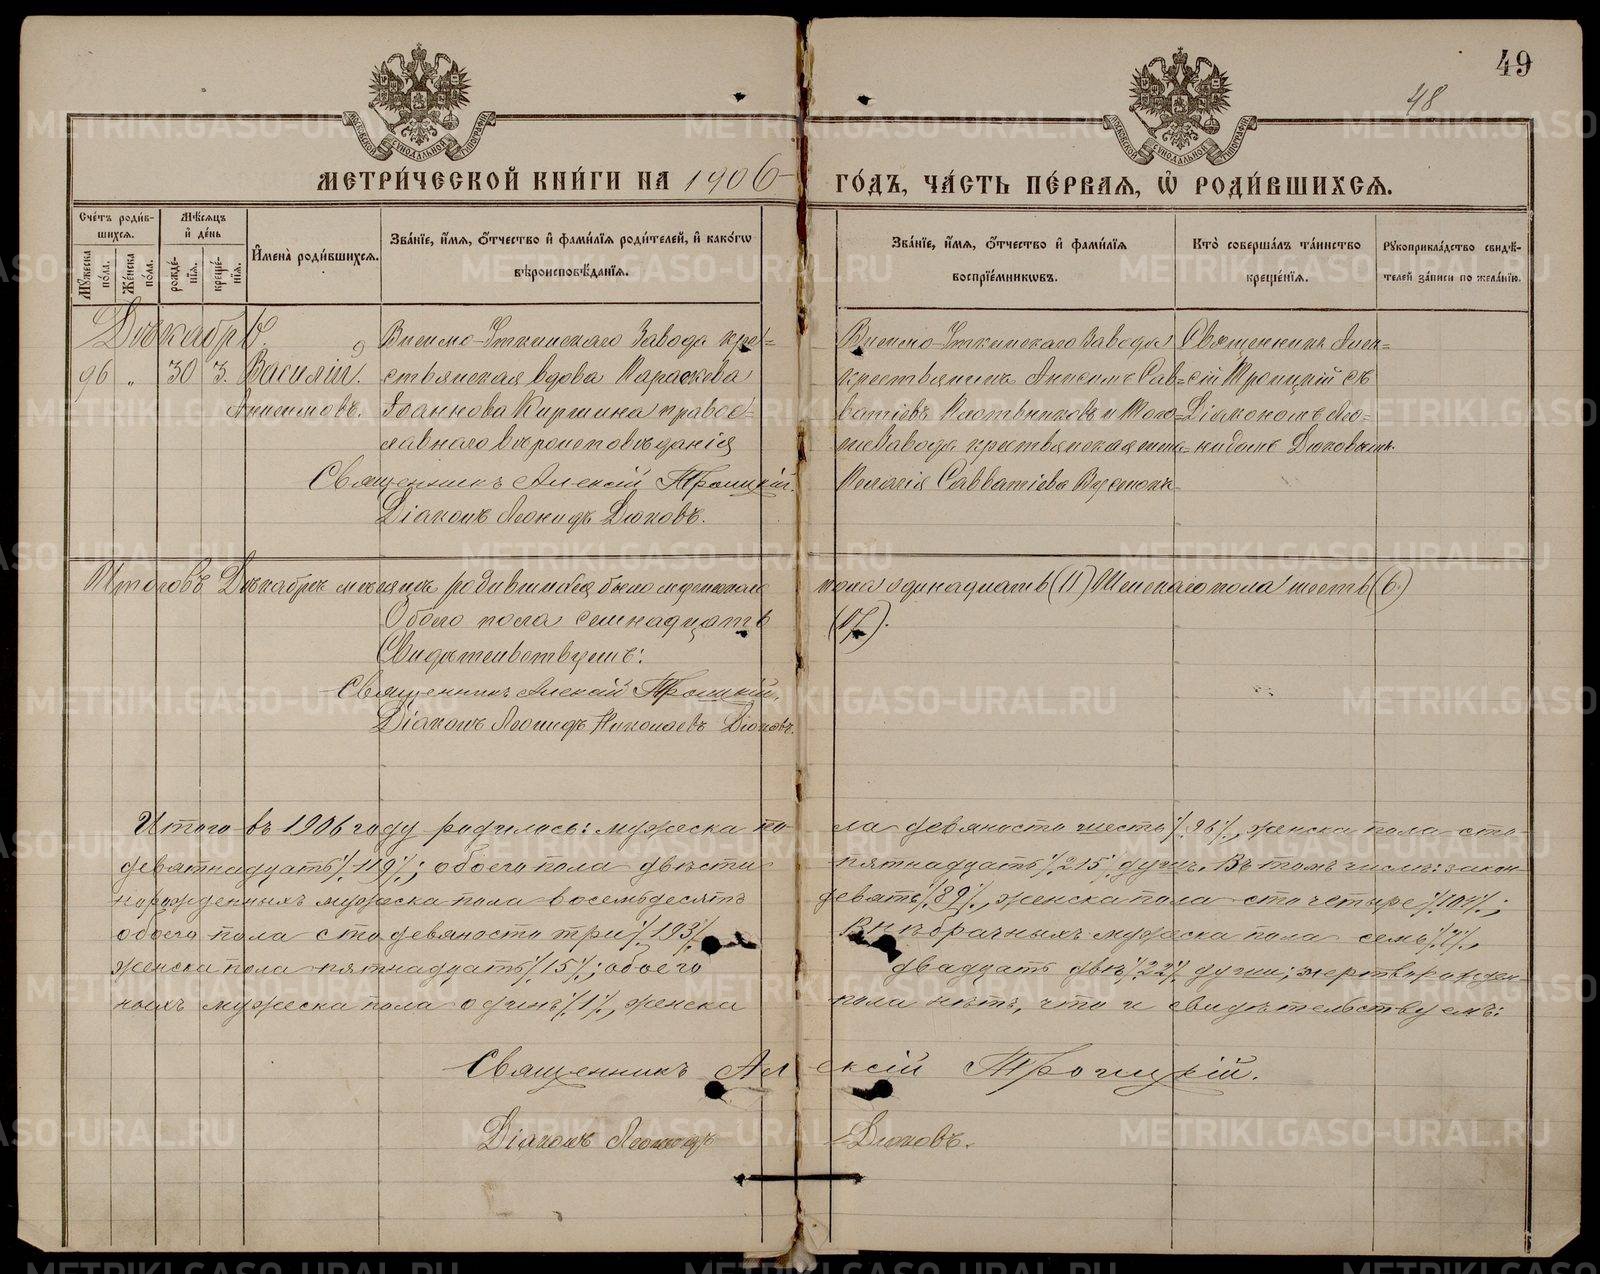 49
48
МЕТРИ́ЧЕСКОЙ КНИ́ГИ НА 1906 ГО́ДЪ, ЧА́СТЬ ПЕ́РВАЯ, Ѡ҆ РОДИ́ВШИХСЯ.
Сче́тъ роди́вшихся.
Мѣ́сяцъ и҆ де́нь
Мꙋ́жеска по́ла.
Же́нска по́ла.
рожде́нїя.
креще́нїя.
И҆мена̀ роди́вшихся.
Зва́нїе, и҆́мя, ѻ҆́тчество и҆ фами́лїя роди́телей, и҆ како́гѡ вѣроисповѣ́данїя.
Зва́нїе, и҆́мя, ѻ҆́тчество и҆ фами́лїя воспрїе́мникѡвъ.
Кто̀ соверша́лъ та́инство креще́нїя.
Рꙋкоприкла́дство свидѣ́телей за́писи по жела́нїю.
Декабрь.
96 „ 30 3. Василій.
Анисимовъ.
Висимо-Уткинскаго Завода кре=
стьянская вдова Параскева
Іоаннова Киршина правос=
лавнаго вѣроисповѣданія
Священникъ Алексій Троицкій.
Діаконъ Леонидъ Дюковъ.
Висимо-Уткинскаго Завода
крестьянинъ Анисимъ Сав=
ватіевъ Плотниковъ и Того=
же Завода крестьянская жена
Пелагія Савватіева
Священникъ Алек=
сій Троицкій съ
Діакономъ Лео=
нидомъ Дюковымъ.
Итого въ Декабрѣ мѣсяцѣ родившихся было мужескаго пола одинадцать (11) Женскаго пола шесть (6)
Обоего пола семнадцать (17).
Свидѣтельствуемъ:
Священникъ Алексій Троицкій.
Діаконъ Леонидъ Николаевъ Дюковъ.
Итого въ 1906 году родилось: мужеска пола девяносто шесть /. 96 /., женска пола сто
девятнадцать /. 119 /.; обоего пола двѣсти пятнадцать /. 215 /. душъ. Въ томъ числѣ: закон
норожденныхъ мужеска пола восемьдесятъ девять /. 89 /., женска пола сто четыре /. 104 /.;
обоего пола сто девяносто три /. 193 /. Внѣбрачныхъ мужеска пола семь /. 7 /.,
женска пола пятнадцать /. 15 /.; обоего двадцать двѣ /. 22 /. души; мертворожден
ныхъ мужеска пола одинъ /. 1 /., женска пола нѣтъ, что и свидѣтельствуемъ:
Священникъ Алексій Троицкій.
Діаконъ Леонидъ Дюковъ.
METRIKI.GASO-URAL.RU